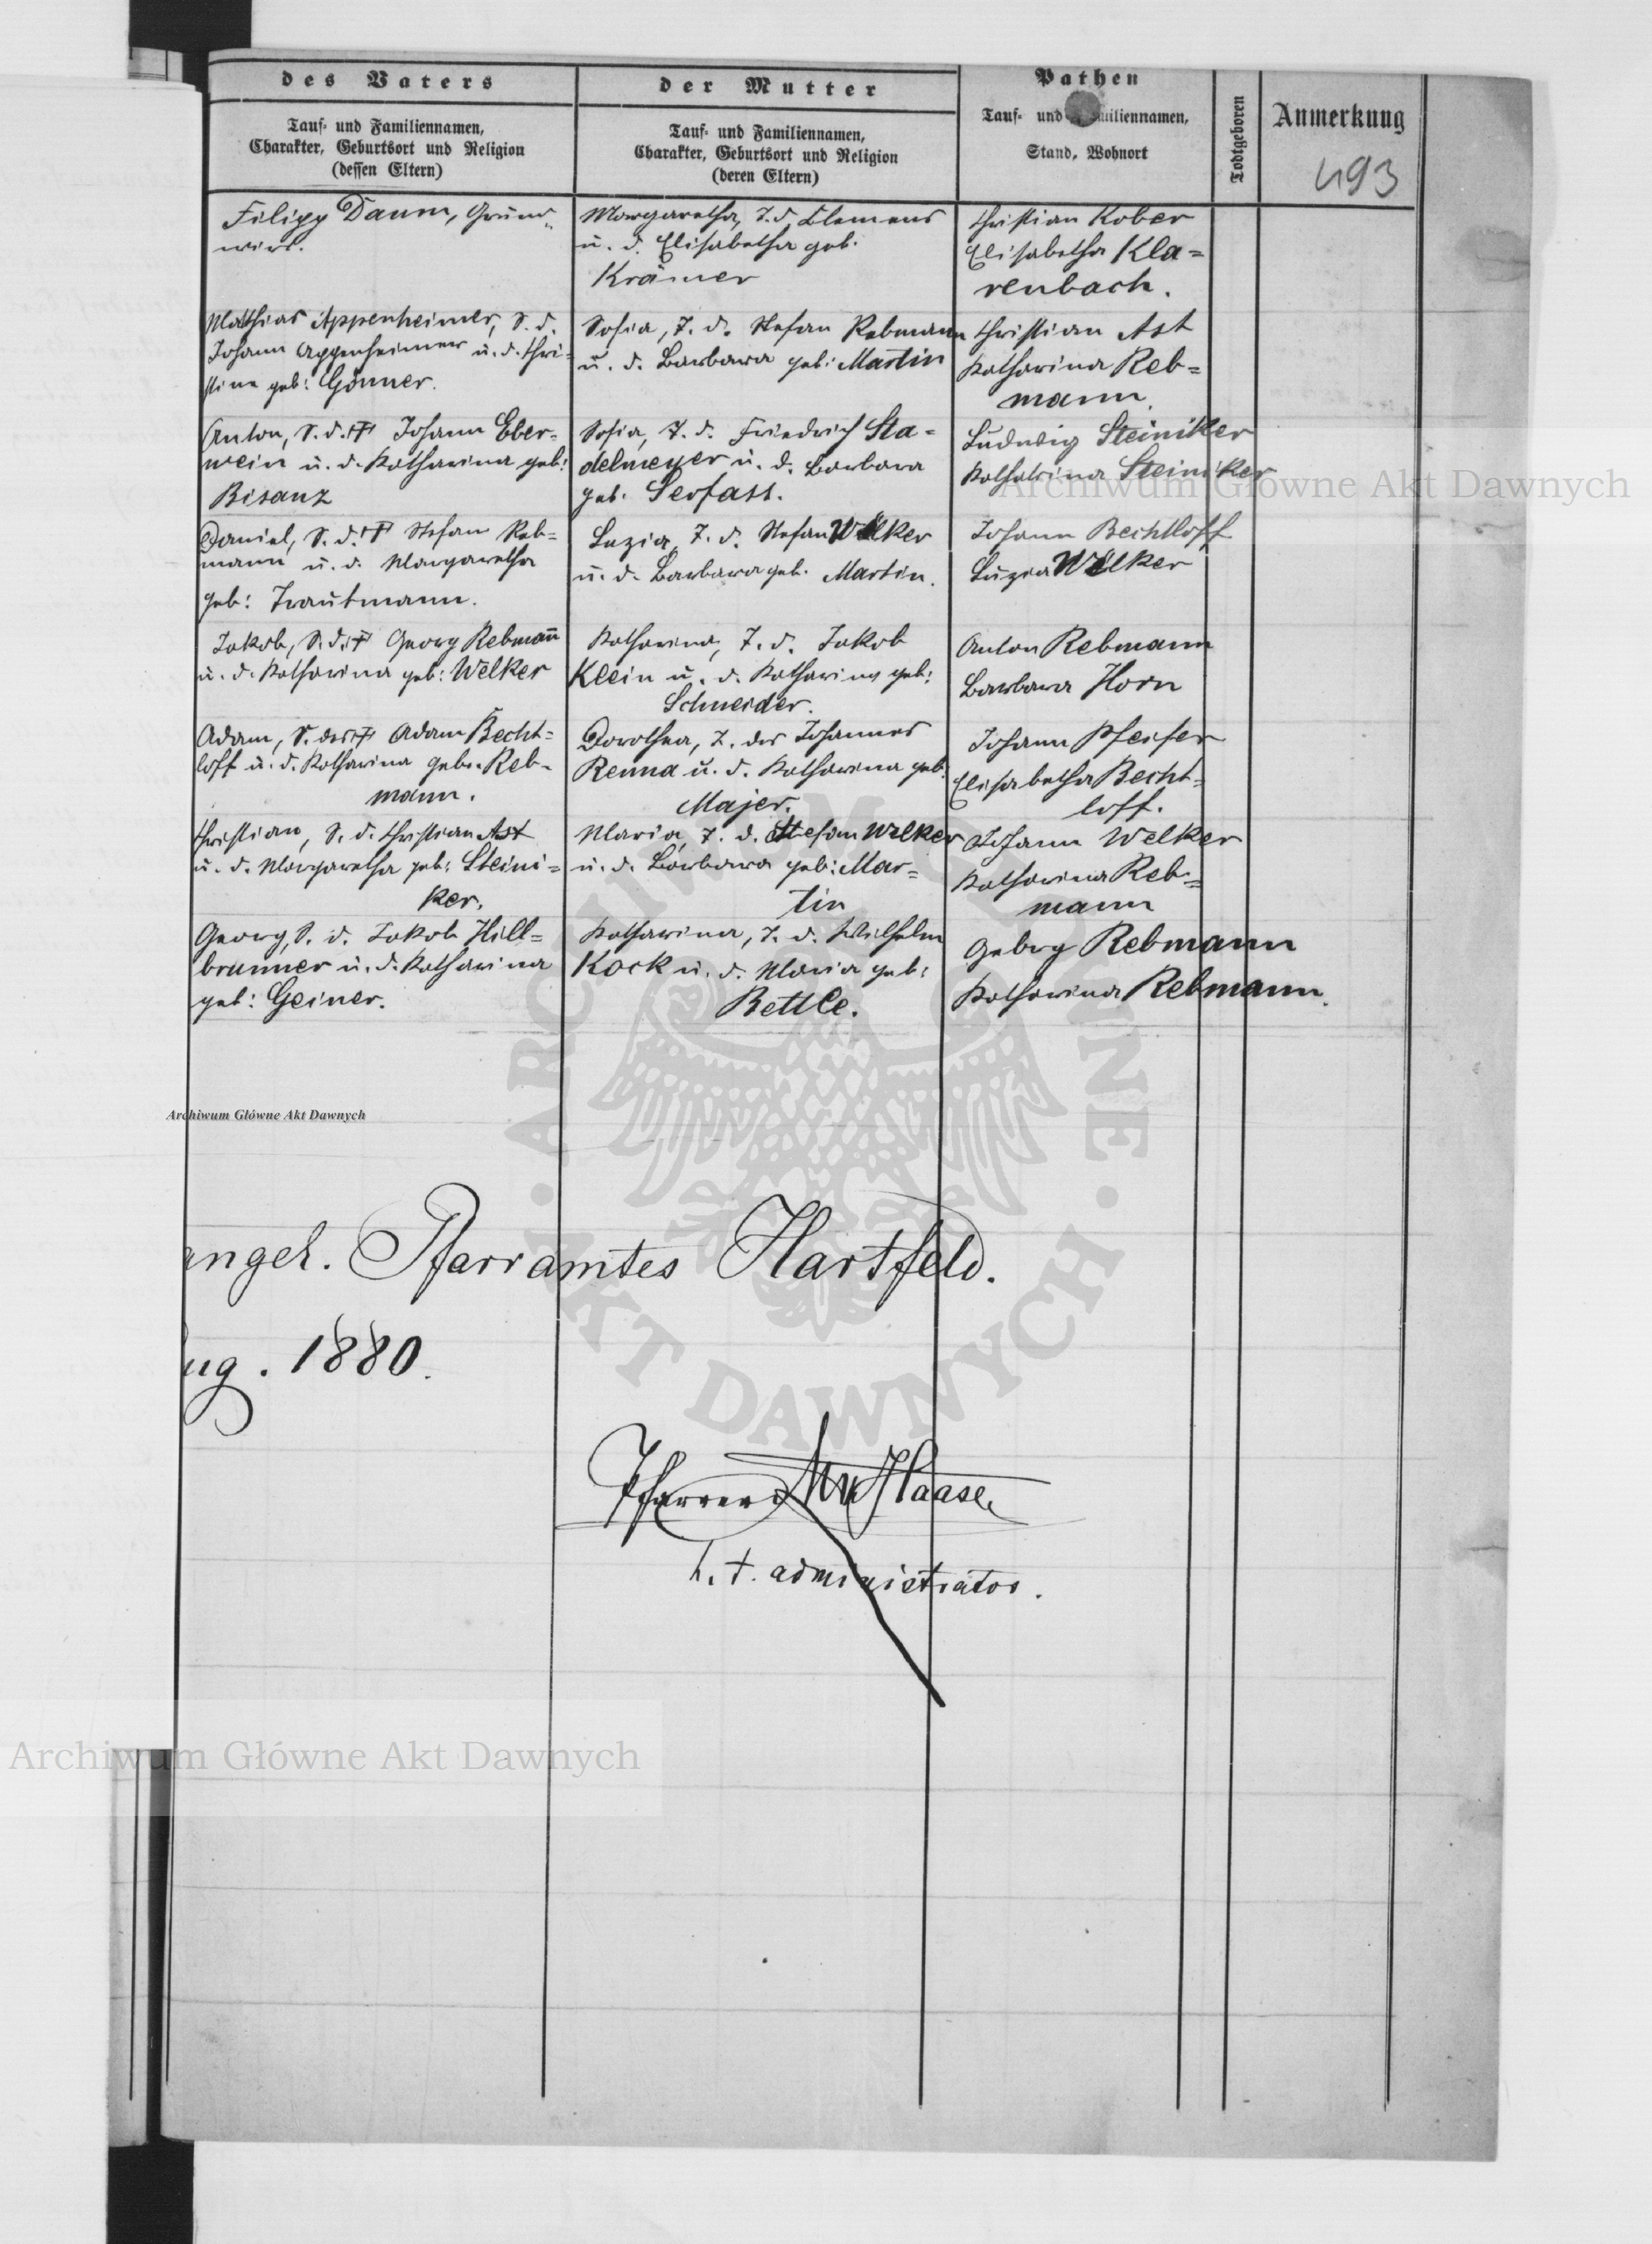 des Vaters
Tauf- und Familiennamen,
Charakter, Geburtsort und Religion
(dessen Eltern)
der Mutter
Tauf- und Familiennamen,
Charakter, Geburtsort und Religion
(deren Eltern)
Pathen
Tauf- und miliennamen,
Stand, Wohnort
Todtgeboren
Anmerkung
493
Filipp Daum, Grund-
wirt.
Margaretha, T. d. Clemens
u. d. Elisabetha geb.
Krämer
Christian Kober
Elisabetha Kla=
renbach.
Mathias Appenheimer, S. d.
Johann Appenheimer u. d. Chri=
stina geb: Gönner.
Sofia, T. d. Stefan Rebmann
u. d. Barbara geb: Martin
Christian Ast
Katharina Reb=
mann.
Anton, S. d. † Johann Eber=
wein u. d. Katharina geb:
Bisanz
Sofia, T. d. Friedrich Sta=
delmeyer u. d. Barbara
geb. Serfass.
Ludwig Steiniker
Katharina Steiniker
Daniel, S. d. † Stefan Reb=
mann u. d. Margaretha
geb: Trautmann.
Luzia, T. d. Stefan Welker
u. d. Barbara geb. Martin.
Johann Bechtloff
Luzia Welker
Jakob, S. d. † Georg Rebmañ
u. d. Katharina geb: Welker
Katharina, T. d. Jakob
Klein u. d. Katharina geb:
Schneider.
Anton Rebmann
Barbara Horn
Adam, S. des † Adam Becht=
loff u. d. Katharina geb. Reb-
mann.
Dorothea, T. des Johannes
Renna u. d. Katharina geb.
Majer.
Johann Pfeifer
Elisabetha Becht=
loff.
Christian, S. d. Christian Ast
u. d. Margaretha geb: Steini=
ker.
Maria, T. d. Stefan Welker
u. d. Barbara geb: Mar=
tin
Johann Welker
Katharina Reb=
mann
Georg, S. d. Jakob Hill=
brunner u. d. Katharina
geb: Geiner.
Katharina, T. d. Wilhelm
Kock u. d. Maria geb:
Bettle.
Georg Rebmann
Katharina Rebmann.
angel. Pfarramtes Hartfeld.
ug. 1880.
Pfarrer Haase
h. t. administrator.
Archiwum Główne Akt Dawnych
Archiwum Główne Akt Dawnych
Archiwum Główne Akt Dawnych
ARCHIWUM GŁÓWNE AKT DAWNYCH